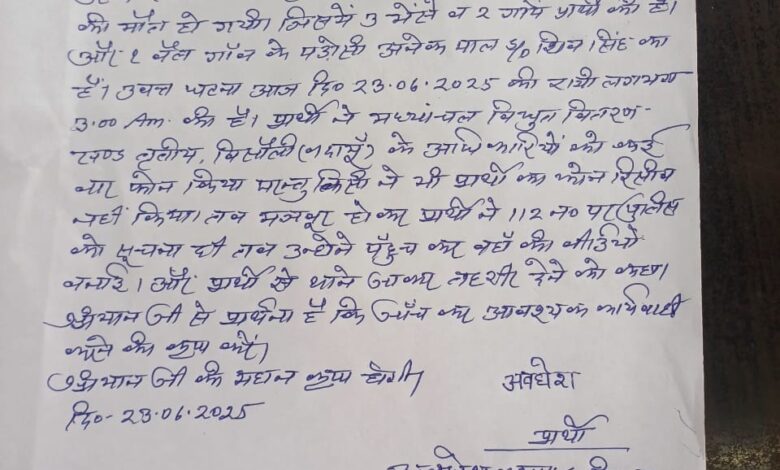 की मौत हो गयी। जिसमें 3 भैंसे व 2 गायें प्रार्थी की है।
और 1 बैल गाँव के पडोसी अनेक पाल S/o शिव सिंह का
है। उक्त घटना आज दि० 23.06.2025 की रात्री लगभग
3:00 Am. की है। प्रार्थी ने मध्यांचल विधुत वितरण-
खण्ड तृतीय, बिसौली (बदायूँ) के अधिकारियों को कई
बार फोन किया परन्तु किसी ने भी प्रार्थी का फोन रिसीव
नहीं किया। तब मजबूर हो कर प्रार्थी ने 112 न० पर पुलिस
को सूचना दी तब उन्होने पहुँच कर वहाँ की वीडियो
बनाई। और प्रार्थी से थाने जाकर तहरीर देने को कहा।
श्रीमान जी से प्रार्थना है कि जाँच कर आवश्यक कार्यवाही
करने की कृपा करें।
श्रीमान जी की महान कृपा होगी।
दि०- 23.06.2025
अवधेश
प्रार्थी